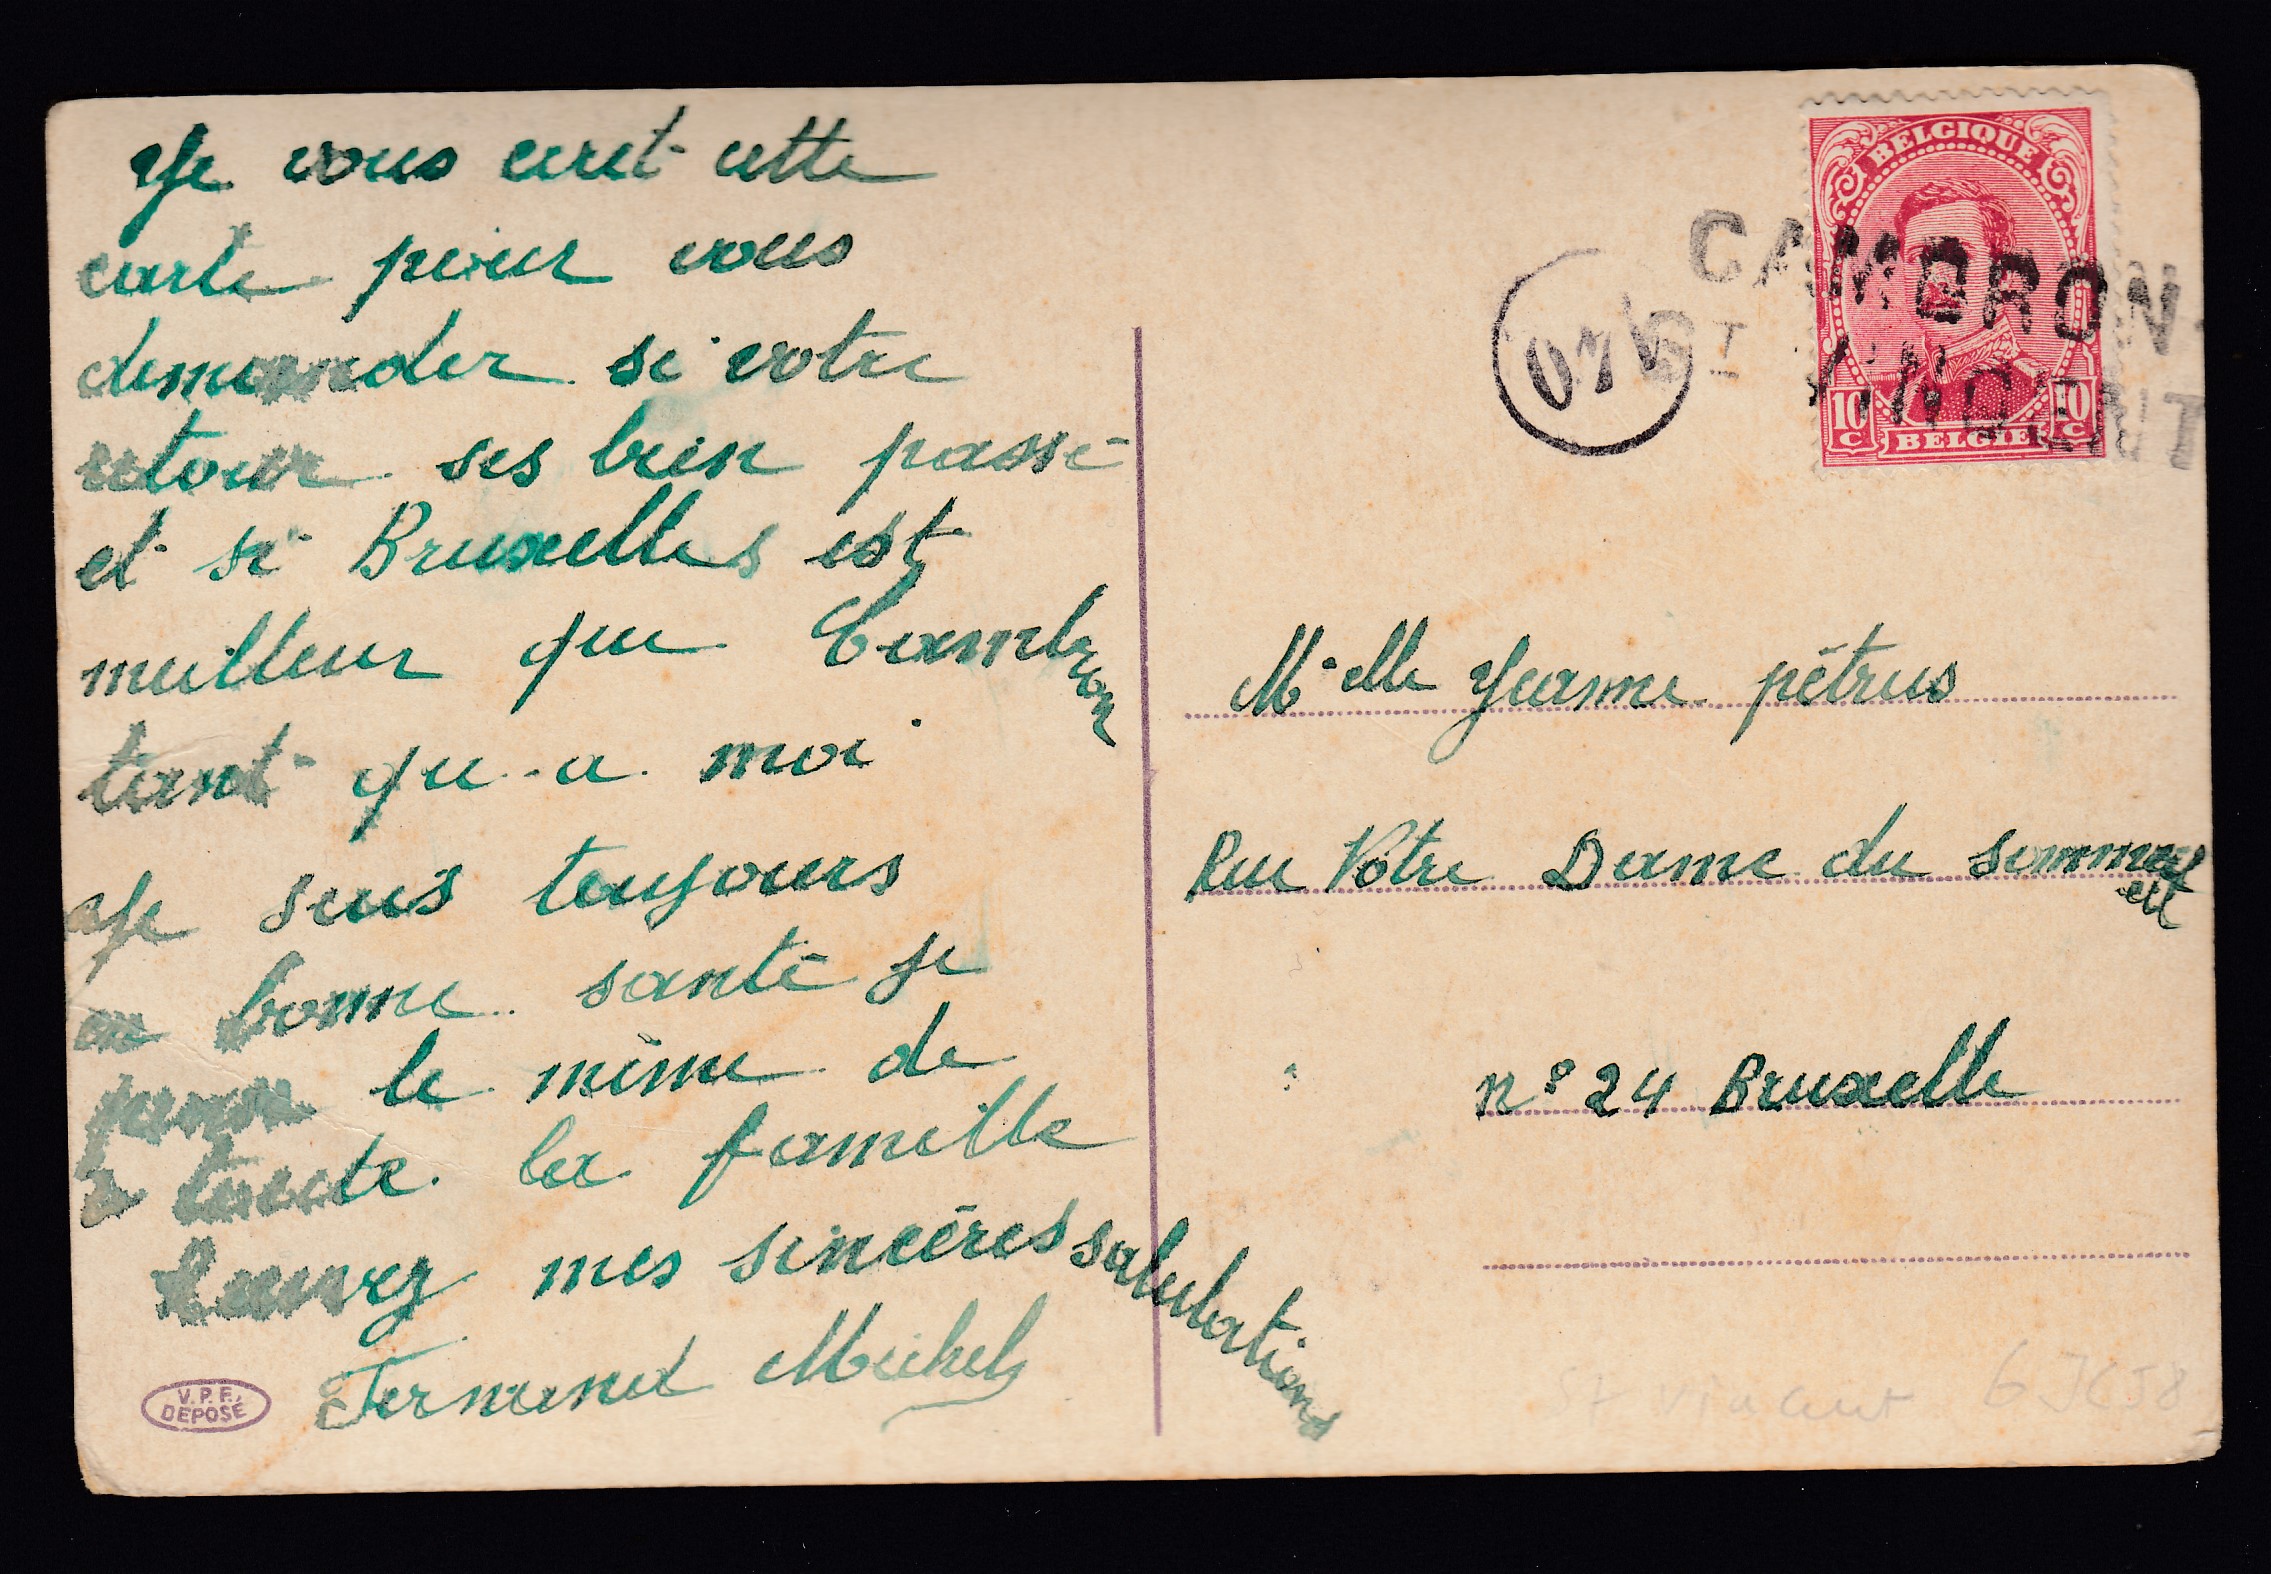 Je vous ecrit cette
carte pour vous
demander si votre
retour ses bien passé
et si Bruxelles est
meilleur que Cambron
tant qu-a moi
Je suis toujours
en bonne santé je
pense le même de
toute la famille
mes sincéres salutations
Fernand Michel
V.P.F.
DEPOSÉ
BELGIQUE
10 C
10 C
BELGIË
CAMBRON
ST VINCENT
Melle Jeanne pétrus
Rue Notre Dame du sommeil
n° 24 Bruxelle
St Vincent